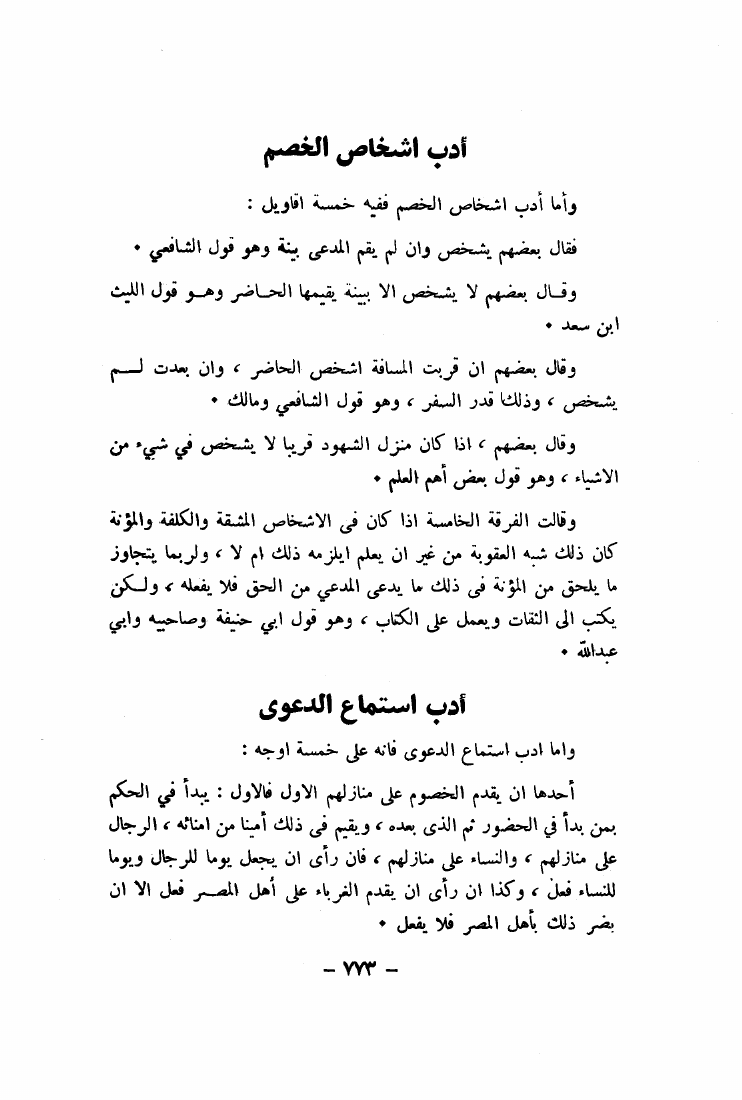 أدب اشخاص الخصم
وأما أدب اشخاص الخصم ففيه خمسة اقاويل :
فقال بعضهم يشخص وان لم يقم المدعى بينة وهو قول الشافعي •
وقال بعضهم لا يشخص الا ببينة يقيمها الحاضر وهو قول الليث
ابن سعد •
وقال بعضهم ان قربت المسافة اشخص الحاضر ، وان بعدت لم
يشخص ، وذلك قدر السفر ، وهو قول الشافعي ومالك •
وقال بعضهم ، اذا كان منزل الشهود قريبا لا يشخص في شيء من
الاشياء ، وهو قول بعض أهم العلم •
وقالت الفرقة الخامسة اذا كان فى الاشخاص المشقة والكلفة والمؤنة
كان ذلك شبه العقوبة من غير ان يعلم ايلزمه ذلك ام لا ، ولربما يتجاوز
ما يلحق من المؤنة فى ذلك ما يدعى المدعي من الحق فلا يفعله ، ولكن
يكتب الى الثقات ويعمل على الكتاب ، وهو قول ابي حنيفة وصاحبيه وابي
عبدالله •
أدب استماع الدعوى
واما ادب استماع الدعوى فانه على خمسة اوجه :
أحدها ان يقدم الخصوم على منازلهم الاول فالاول : يبدأ في الحكم
بمن بدأ في الحضور ثم الذى بعده ، ويقيم فى ذلك أمينا من امنائه ، الرجال
على منازلهم ، والنساء على منازلهم ، فان رأى ان يجعل يوما للرجال ويوما
للنساء فعل ، وكذا ان رأى ان يقدم الغرباء على أهل المصر فعل الا ان
يضر ذلك بأهل المصر فلا يفعل •
– ٧٧٣ –